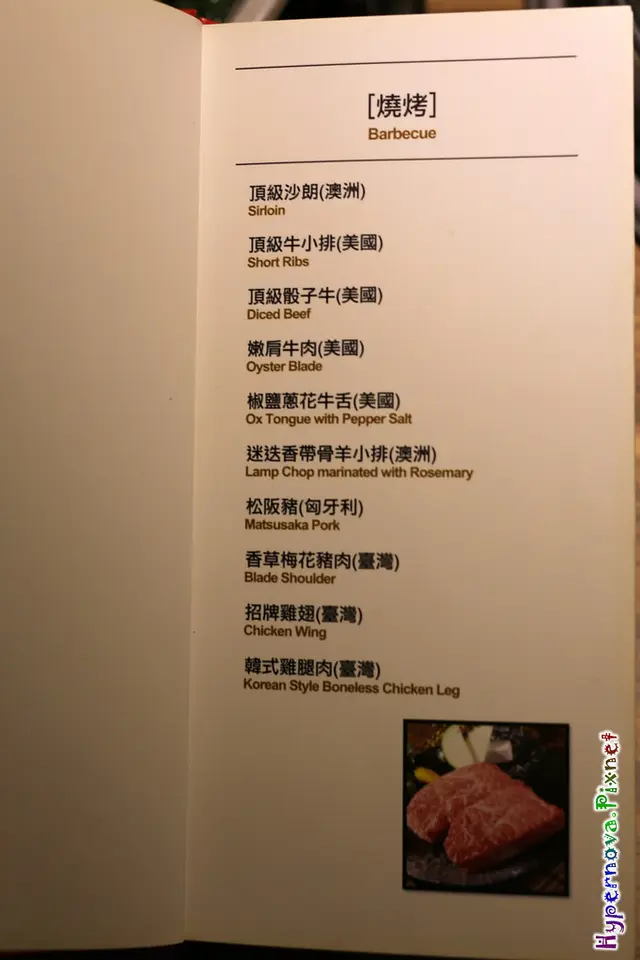 [燒烤]
Barbecue
頂級沙朗(澳洲)
Sirloin
頂級牛小排(美國)
Short Ribs
頂級骰子牛(美國)
Diced Beef
嫩肩牛肉(美國)
Oyster Blade
椒鹽蔥花牛舌(美國)
Ox Tongue with Pepper Salt
迷迭香帶骨羊小排(澳洲)
Lamp Chop marinated with Rosemary
松阪豬(匈牙利)
Matsusaka Pork
香草梅花豬肉(臺灣)
Blade Shoulder
招牌雞翅(臺灣)
Chicken Wing
韓式雞腿肉(臺灣)
Korean Style Boneless Chicken Leg
Hypernova.Pixnet